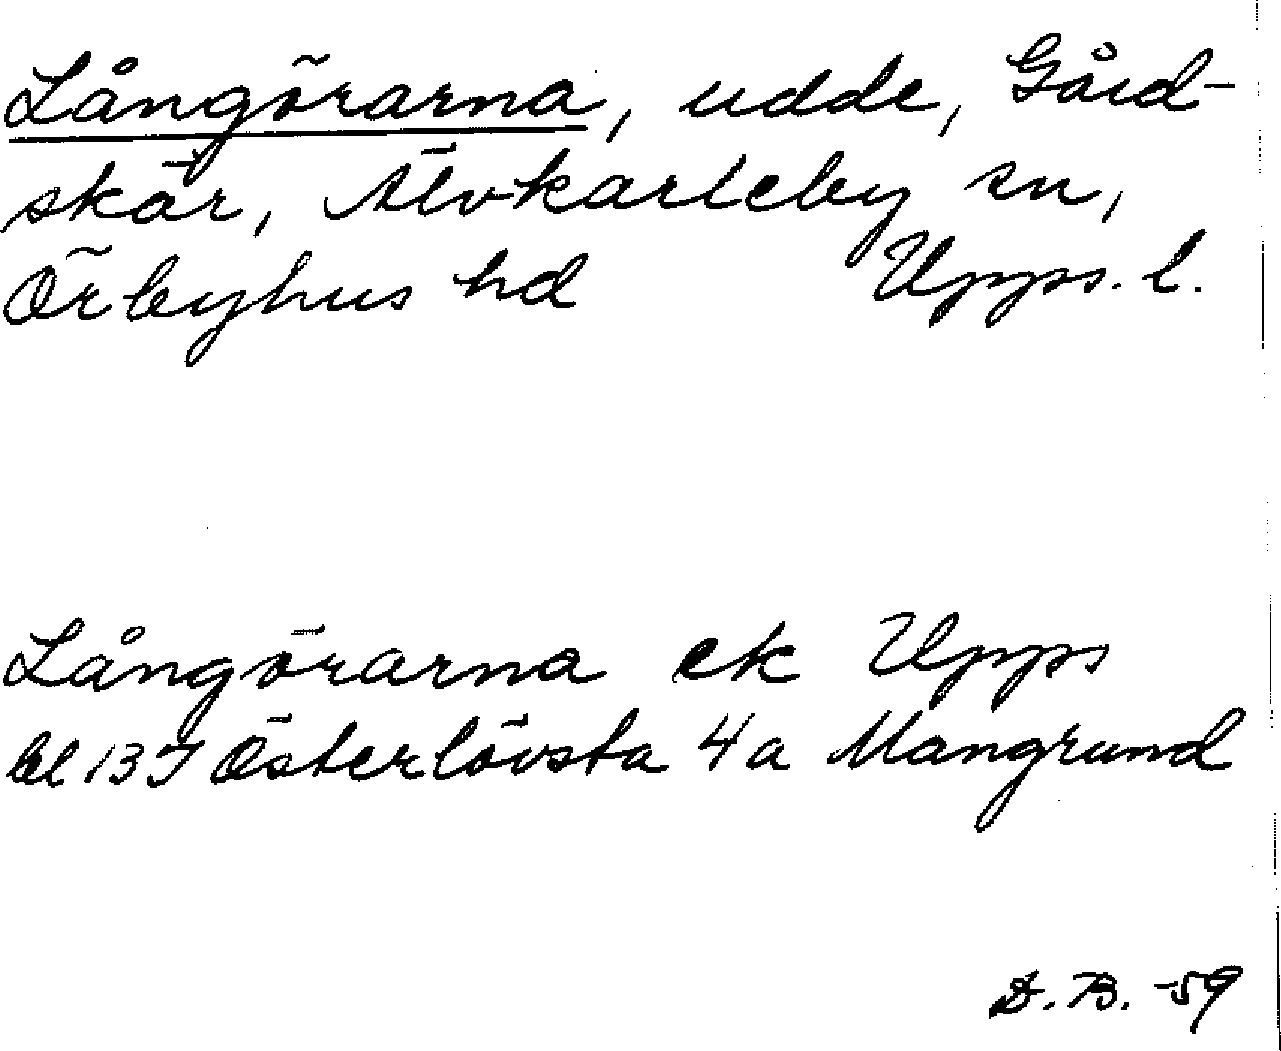 Långörarna, udde, Gård-
skär, Älvkarleby sn,
Örbyhus hd Upps. l.
Långörarna ek Upps
bl 13J Österlövsta 4a Mangrund
D. B. -59